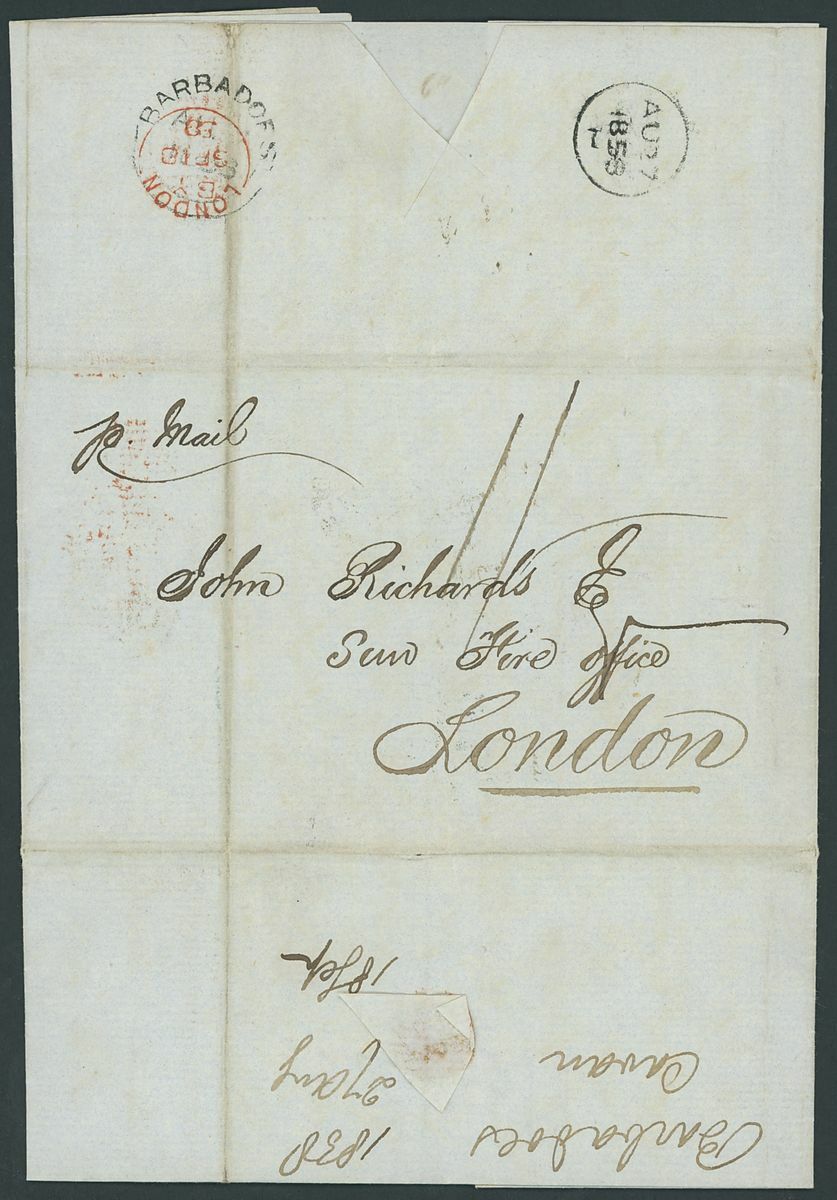 BARBADOES
AU
LONDON
SP 18
AU 27
1858
p. Mail
John Richards
Sun Fire office
London
18 Sep
27 Aug
1858
Cavan
Barbadoes